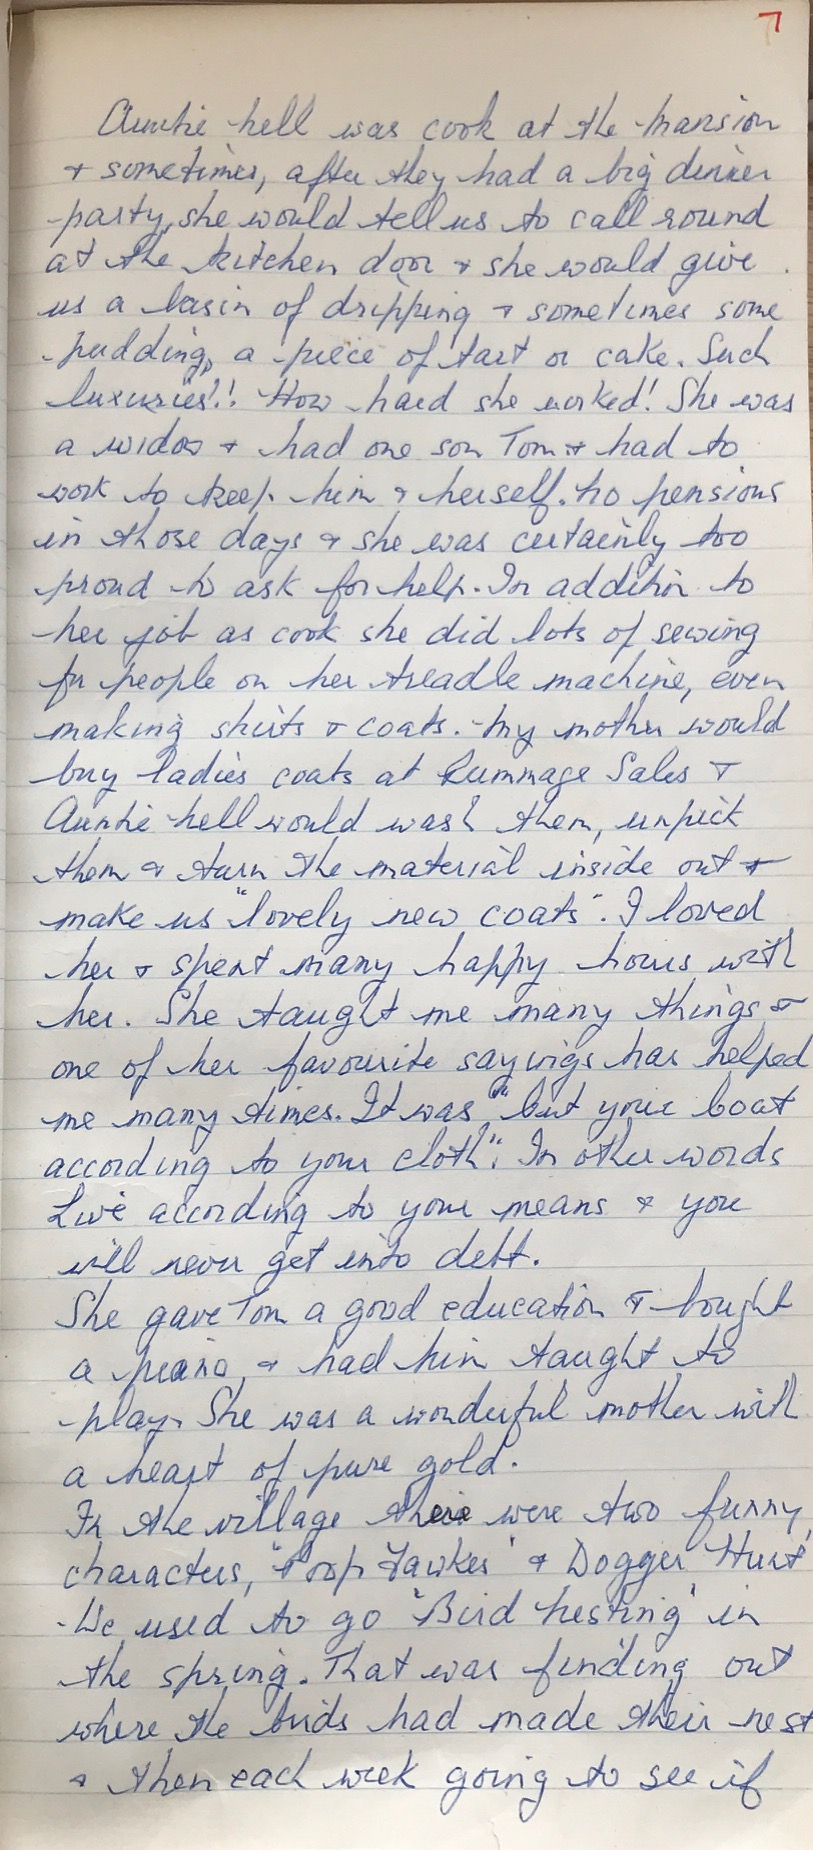 7
Auntie Nell was cook at the Mansion
& sometimes, after they had a big dinner
party, she would tell us to call round
at the kitchen door & she would give
us a basin of dripping & sometimes some
pudding, a piece of tart or cake. Such
luxuries!! How hard she worked! She was
a widow & had one son Tom & had to
work to keep him & herself. No pensions
in those days & she was certainly too
proud to ask for help. In addition to
her job as cook she did lots of sewing
for people on her treadle machine, even
making shirts & coats. My mother would
buy ladies coats at Rummage Sales &
Auntie Nell would wash them, unpick
them & turn the material inside out &
make us "lovely new coats". I loved
her & spent many happy hours with
her. She taught me many things &
one of her favourite sayings has helped
me many times. It was "Cut your coat
according to your cloth". In other words
Live according to your means & you
will never get into debt.
She gave Tom a good education & bought
a piano, & had him taught to
play. She was a wonderful mother with
a heart of pure gold.
In the village there were two funny
characters, "Poop Fawkes" & Dogger Hunt
We used to go 'Bird Nesting' in
the spring. That was finding out
where the birds had made their nest
& then each week going to see if